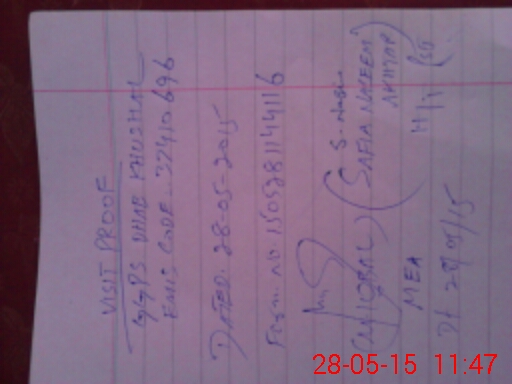 VISIT PROOF
GGPS DHAB KHUSHAL
EMIS CODE. 37410696
DATED. 28-05-2015
Form. no 1505281144116
S. Nasir
(M IQBAL) (SAFIA NAREEM
AKHTAR)
MEA
Dt 28/05/15
28-05-15 11:47